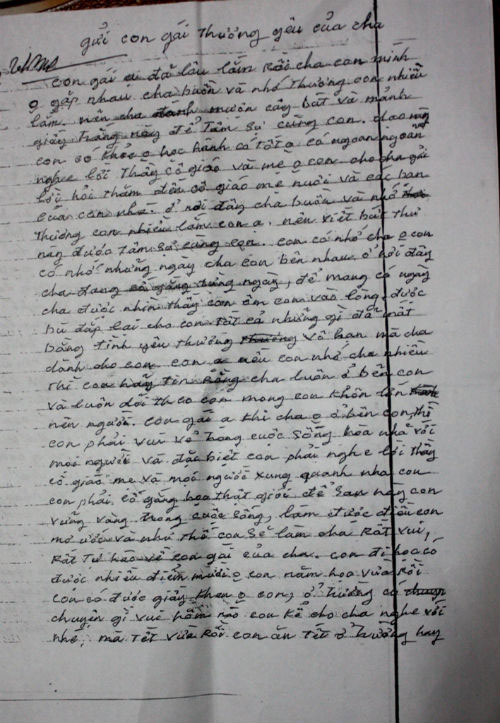 gửi con gái thương yêu của cha
con gái ạ đã lâu lắm Rồi cha con mình
o gặp nhau cha buồn và nhớ thương con nhiều
lắm. nên cha đành mượn cây bút và mảnh
giấy trắng này để Tâm sự cùng con. dạo này
con có khỏe o học hành có tốt o có ngoan ngoãn
nghe lời Thầy cô giáo và mẹ o con. cho cha gửi
lời hỏi thăm đến cô giáo mẹ nuôi và các bạn
của con nhé. ở nơi đây cha buồn và nhớ
thương con nhiều lắm con ạ. nên viết bức thư
này được tâm sự cùng con. con có nhớ cha o con
có nhớ những ngày cha con bên nhau. ở nơi đây
cha đang cố gắng từng ngày, để mong có ngày
cha được nhìn thấy con ôm con vào lòng. được
bù đắp lại cho con tất cả những gì đã mất
bằng tình yêu thương thương vô hạn mà cha
dành cho con. con ạ nếu con nhớ cha nhiều
thì con hãy tin Rằng cha luôn ở bên con
và luôn dõi theo con mong con khôn lớn
nên người. con gái ạ khi cha o ở bên con, thì
con phải vui vẻ trong cuộc sống hòa nhã với
mọi người và đặc biệt con phải nghe lời thầy
cô giáo mẹ và mọi người xung quanh nha con
con phải cố gắng học thật giỏi để sau này con
vững vàng trong cuộc sống, làm được điều con
mơ ước và như thế con sẽ làm cha Rất vui,
Rất tự hào về con gái của cha. con đi học có
được nhiều điểm mười o con năm học vừa Rồi
con có được giấy khen o con, ở trường có
chuyện gì vui hãm nào con kể cho cha nghe với
nhé, mà Tết vừa Rồi con ăn Tết ở Trường hay